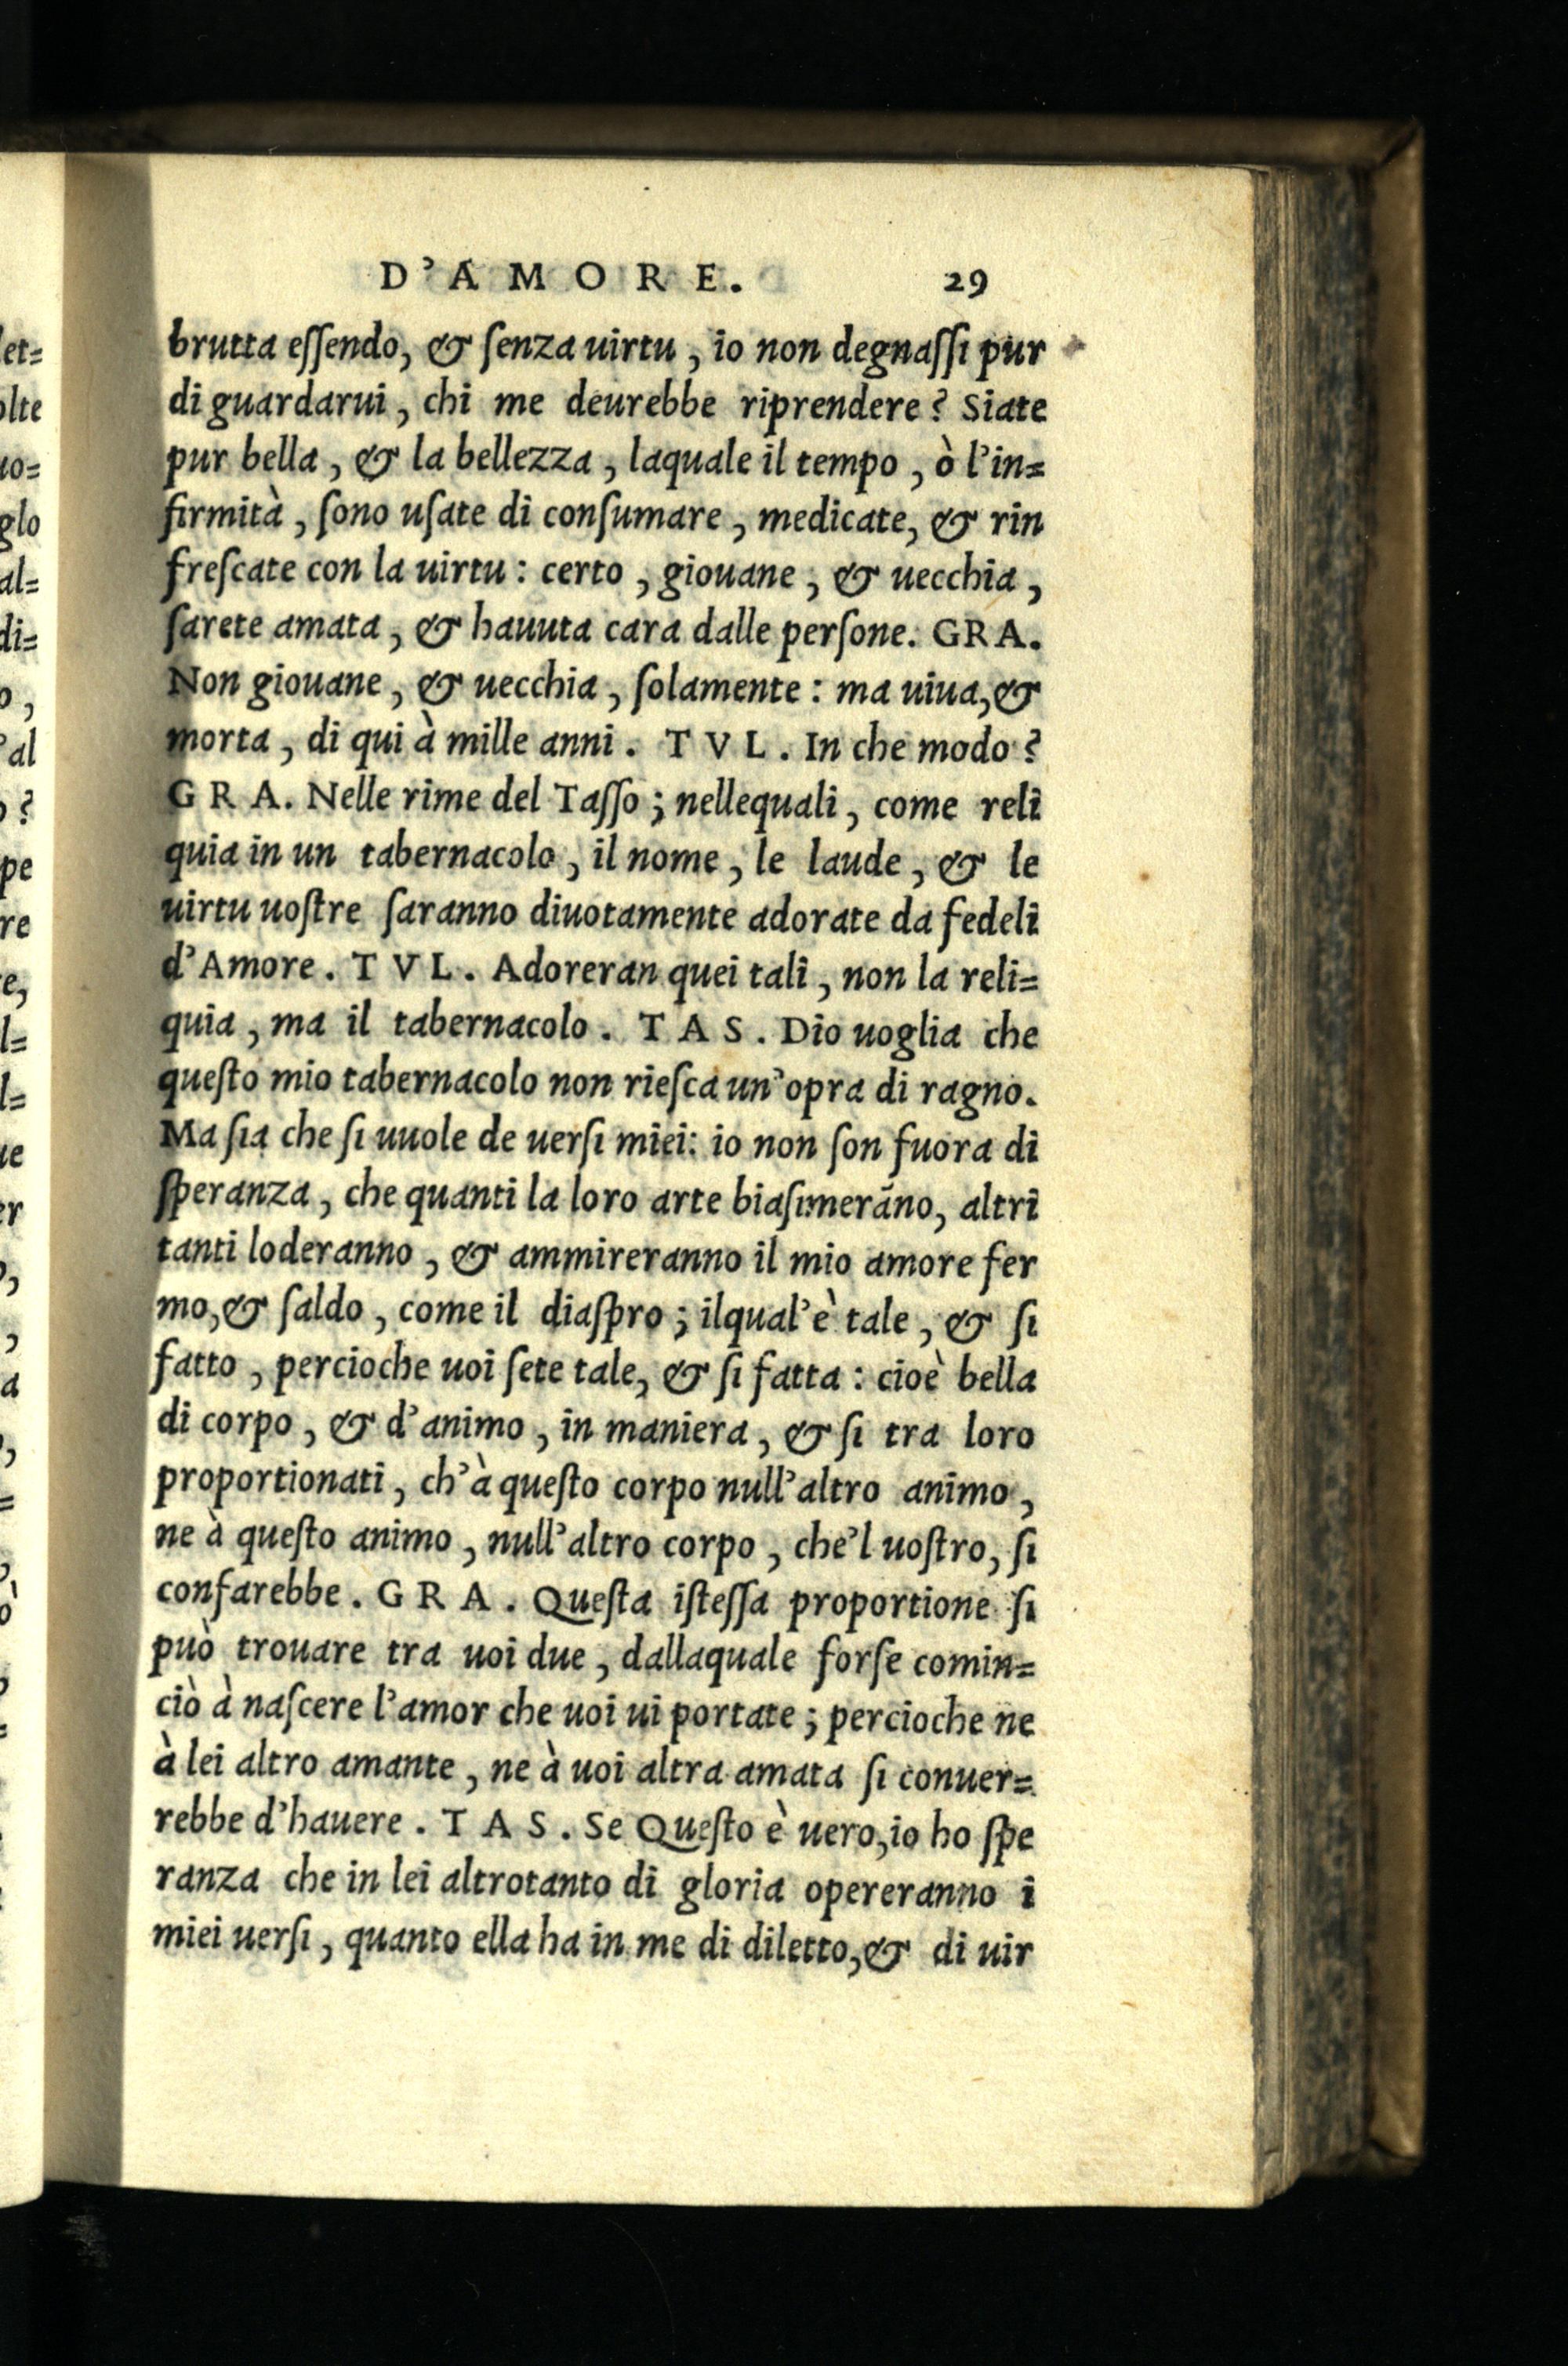 D'AMORE. 29
brutta eſſendo, & ſenza uirtu, io non degnaſſi pur
di guardarui, chi me deurebbe riprendere? Siate
pur bella, & la bellezza, laquale il tempo, ò l'in=
firmità, ſono uſate di conſumare, medicate, & rin
freſcate con la uirtu: certo, giouane, & uecchia,
ſarete amata, & hauuta cara dalle perſone. GRA.
Non giouane, & uecchia, ſolamente: ma uiua, &
morta, di qui à mille anni. TVL. In che modo?
GRA. Nelle rime del Taſſo; nellequali, come reli
quia in un tabernacolo, il nome, le laude, & le
uirtu uoſtre ſaranno diuotamente adorate da fedeli
d'Amore. TVL. Adoreran quei tali, non la reli=
quia, ma il tabernacolo. TAS. Dio uoglia che
queſto mio tabernacolo non rieſca un'opra di ragno.
Ma ſia che ſi uuole de uerſi miei: io non ſon fuora di
ſperanza, che quanti la loro arte biaſimerãno, altri
tanti loderanno, & ammireranno il mio amore fer
mo, & ſaldo, come il diaſpro; ilqual'è tale, & ſi
fatto, percioche uoi ſete tale, & ſi fatta: cioè bella
di corpo, & d'animo, in maniera, & ſi tra loro
proportionati, ch'à queſto corpo null'altro animo,
ne à queſto animo, null'altro corpo, che'l uoſtro, ſi
confarebbe. GRA. Queſta iſteſſa proportione ſi
può trouare tra uoi due, dallaquale forſe comin=
ciò à naſcere l'amor che uoi ui portate; percioche ne
à lei altro amante, ne à uoi altra amata ſi conuer=
rebbe d'hauere. TAS. Se Queſto è uero, io ho ſpe
ranza che in lei altrotanto di gloria opereranno i
miei uerſi, quanto ella ha in me di diletto, & di uir